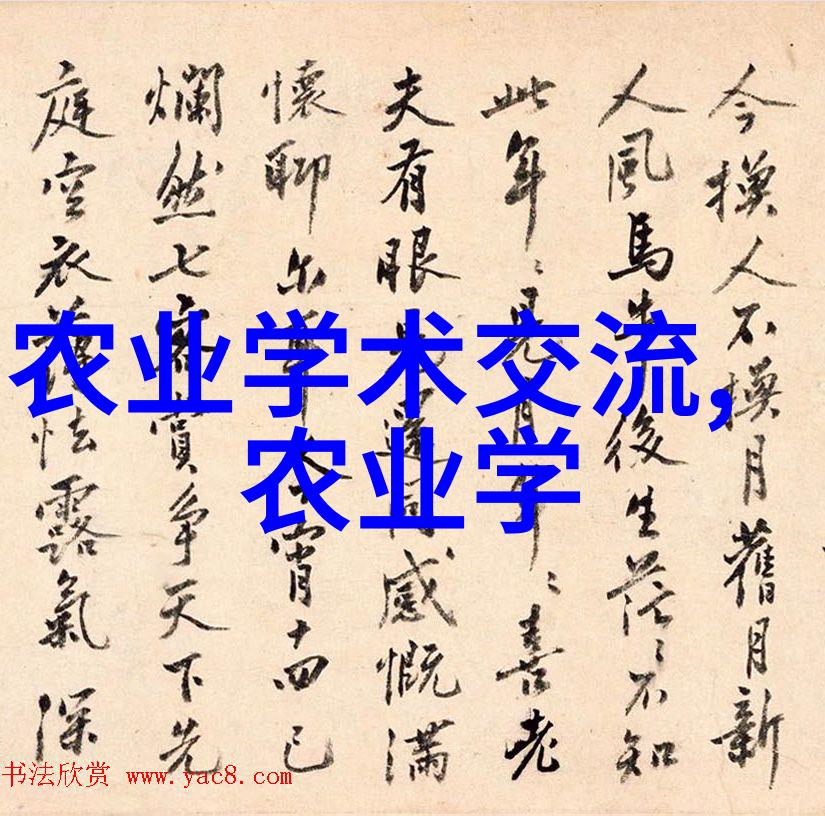 农业学术交流,
农业学
今換人不換月舊月新
人風馬牛後生茫々不知
此年々見月年々喜老
夫有眼同感慨滿
懷聊尔宵十四已
爛然七客賞爭天下先
庭空衣薄怯露氣深
书法欣赏 www.yac8.com